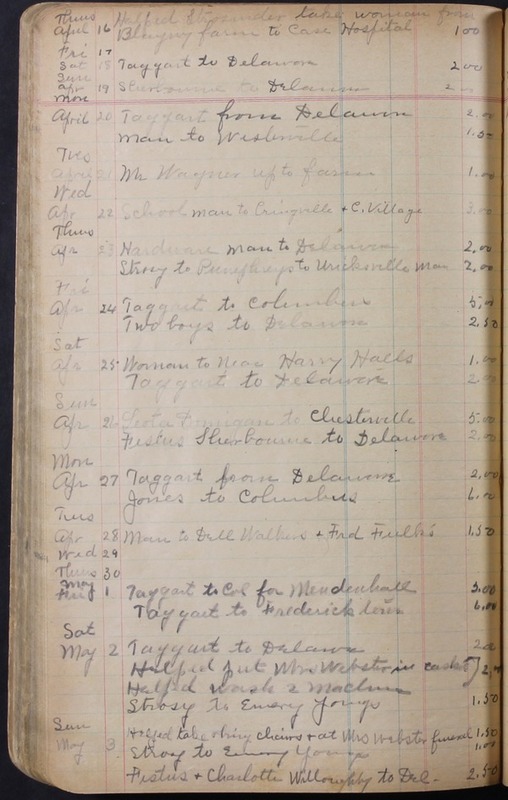 Thurs Helped Strosnider take woman from
April 16 Blayney farm to Case Hospital 1 00
Fri 17
Sat 18 Taggart to Delaware 2 00
Sun
Apr 19 Sherbourne to Delaware 2 00
Mon
April 20 Taggart from Delaware 2.00
Man to Westerville 1.50
Tues
April 21 Mr Wagner up to farm 1.00
Wed
Apr 22 School man to + C. Village 3.00
Thurs
Apr 23 Hardware man to Delaware 2.00
Strosy to Pumphreys to Uricksville Man 2.00
Fri
Apr 24 Taggart to Columbus 5.00
Two boys to Delaware 2.50
Sat
Apr 25 Woman to Near Harry Halls 1.00
Taggart to Delaware 2.00
Sun
Apr 26 Leota Finigan to Chesterville 5.00
Festus Sherbourne to Delaware 2.00
Mon
Apr 27 Taggart from Delaware 2.00
Jones to Columbus 6.00
Tues
Apr 28 Man to Dell Walkers + Fred Fulks 1.50
Wed 29
Thurs 30
May
Fri 1 Taggart to Col for Mendenhall 5.00
Taggart to Fredericktown 6.00
Sat
May 2 Taggart to Delaware 2.00
Helped put Mrs Webster in casket
Helped wash 2 Machines
Strosy to Emery Youngs 1.50
Sun
May 3 Helped take chairs + at Mrs Webster funeral 1.50
Strosy to Emery Youngs 1.00
Festus + Charlotte Willoughby to Del- 2.50